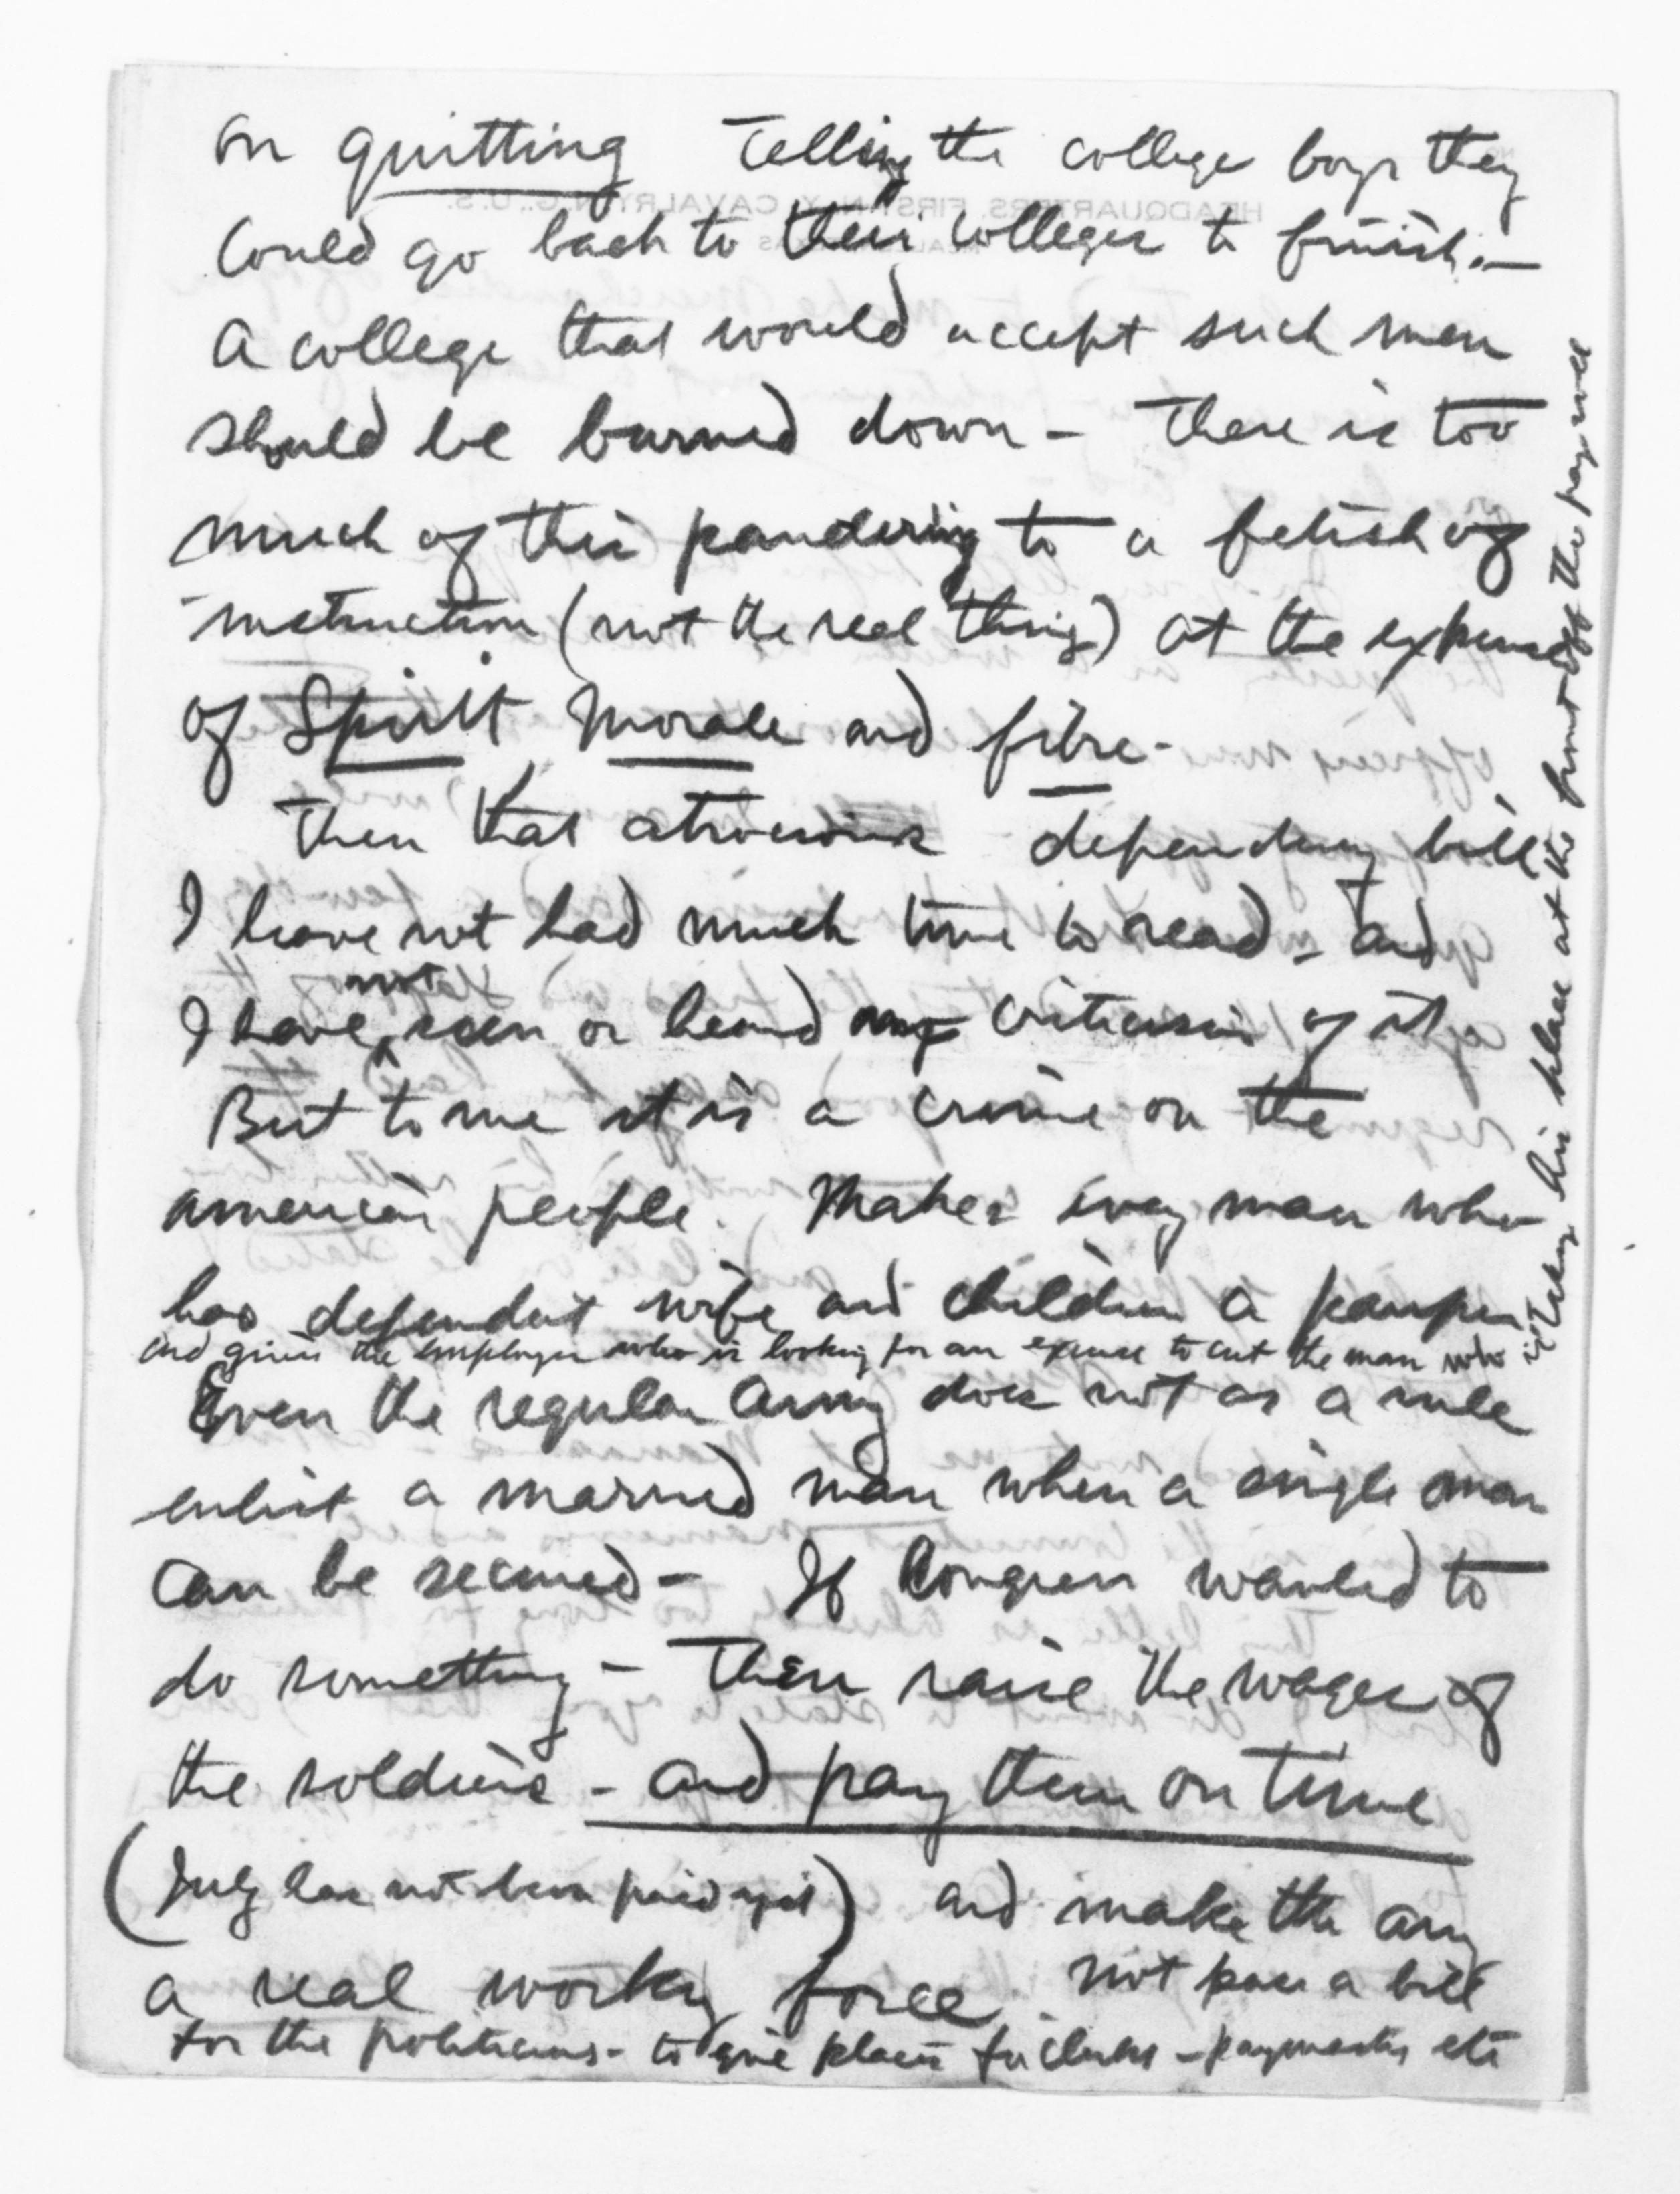 on quitting Telling the college boys they
could go back to their colleges to finish.—
A college that would accept such men
should be burned down - There is too
much of this pandering to a fetish of
instruction (not the real thing) at the expense
of Spirit Morale and fibre -
Then that atrocious dependency bill
I have not had much time to read - and
I have not seen or heard any criticism of it
But to me it is a crime on the
American people. Makes every man who
has dependent wife and children a pauper
and gives the employer who is looking for an excuse to cut the man who is
taking his place at the front off the pay roll
Even the regular Army does not as a rule
enlist a married man when a single man
can be secured - If Congress wanted to
do something - Then raise the wages of
the soldiers - and pay them on time
(July has not been paid yet) and make the army
a real working force. not pass a bill
for the politicians - to give places to clerks - paymasters etc
HEADQUARTERS, FIRST N.Y. CAVALRY, N.G., U.S.